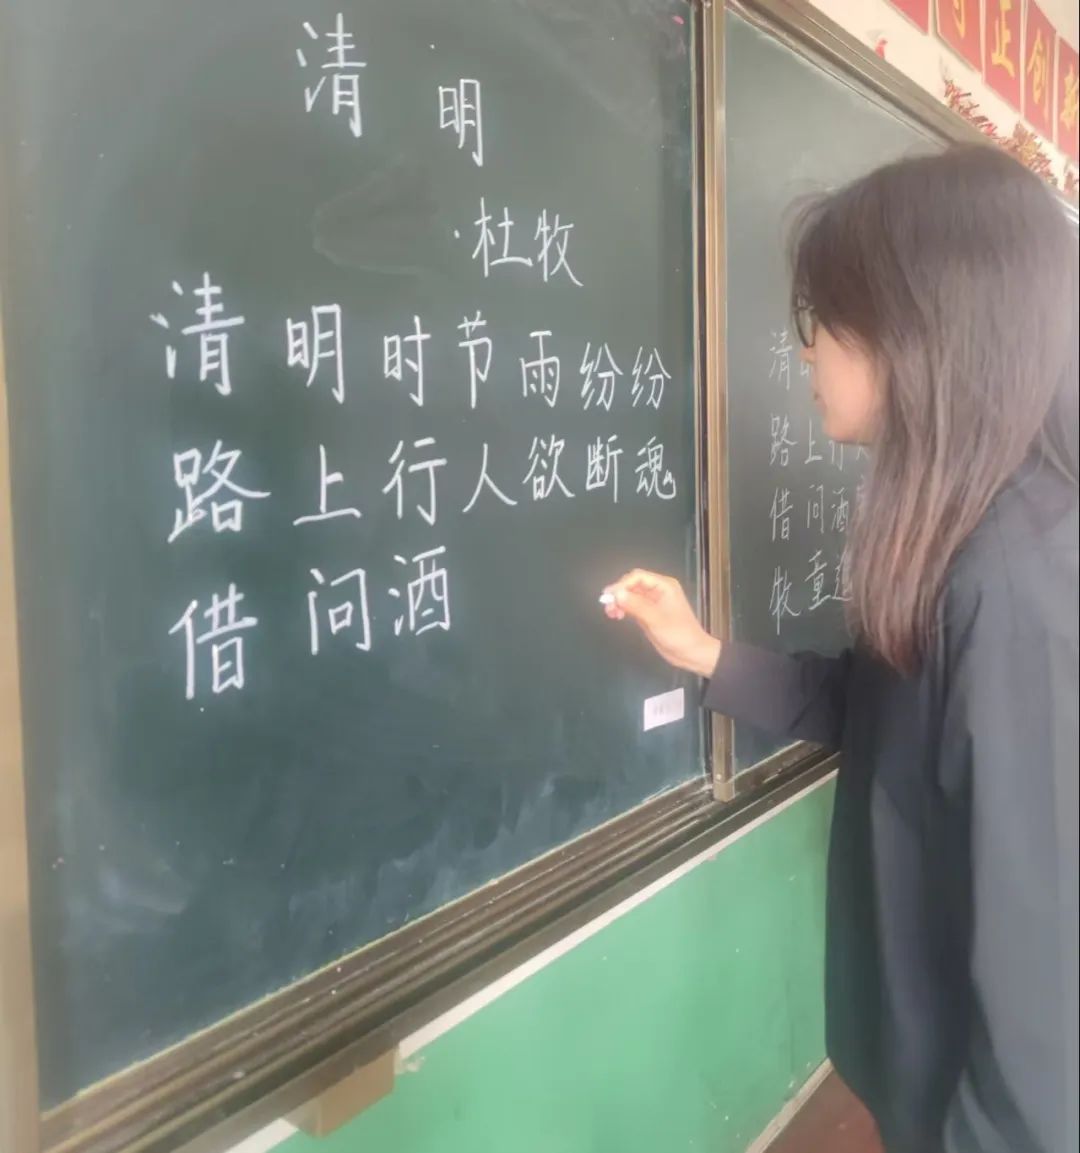 清明
·杜牧
清明时节雨纷纷
路上行人欲断魂
借问酒
清
路上行
借问酒
牧童
正创新